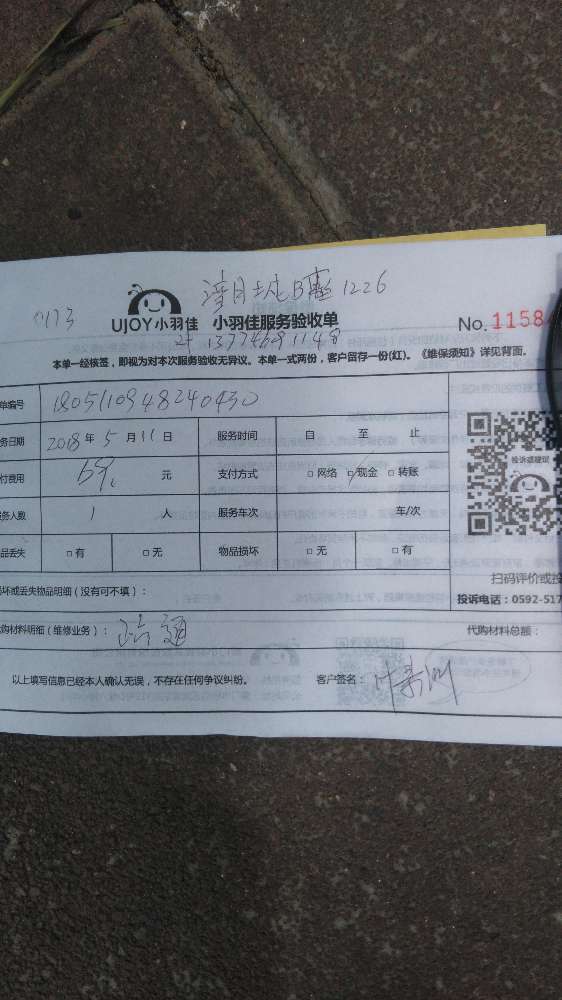 0173 B 1226
UJOY小羽佳 小羽佳服务验收单 No.11584
叶 13774691148
本单一经核签,即视为对本次服务验收无异议。本单一式两份,客户留存一份(红)。《维保须知》详见背面。
单编号 1805110948240430
务日期 2018年5月11日 服务时间 自 至 止
付费用 元 支付方式 □网络 □现金 □转账
投诉或建议
服务人数 1 人 服务车次 车/次
品丢失 □有 □无 物品损坏 □无 □有
扫码评价或投
损坏或丢失物品明细(没有可不填): 投诉电话:0592-517
代购材料明细(维修业务): 疏通 代购材料总额:
以上填写信息已经本人确认无误,不存在任何争议纠纷。 客户签名: